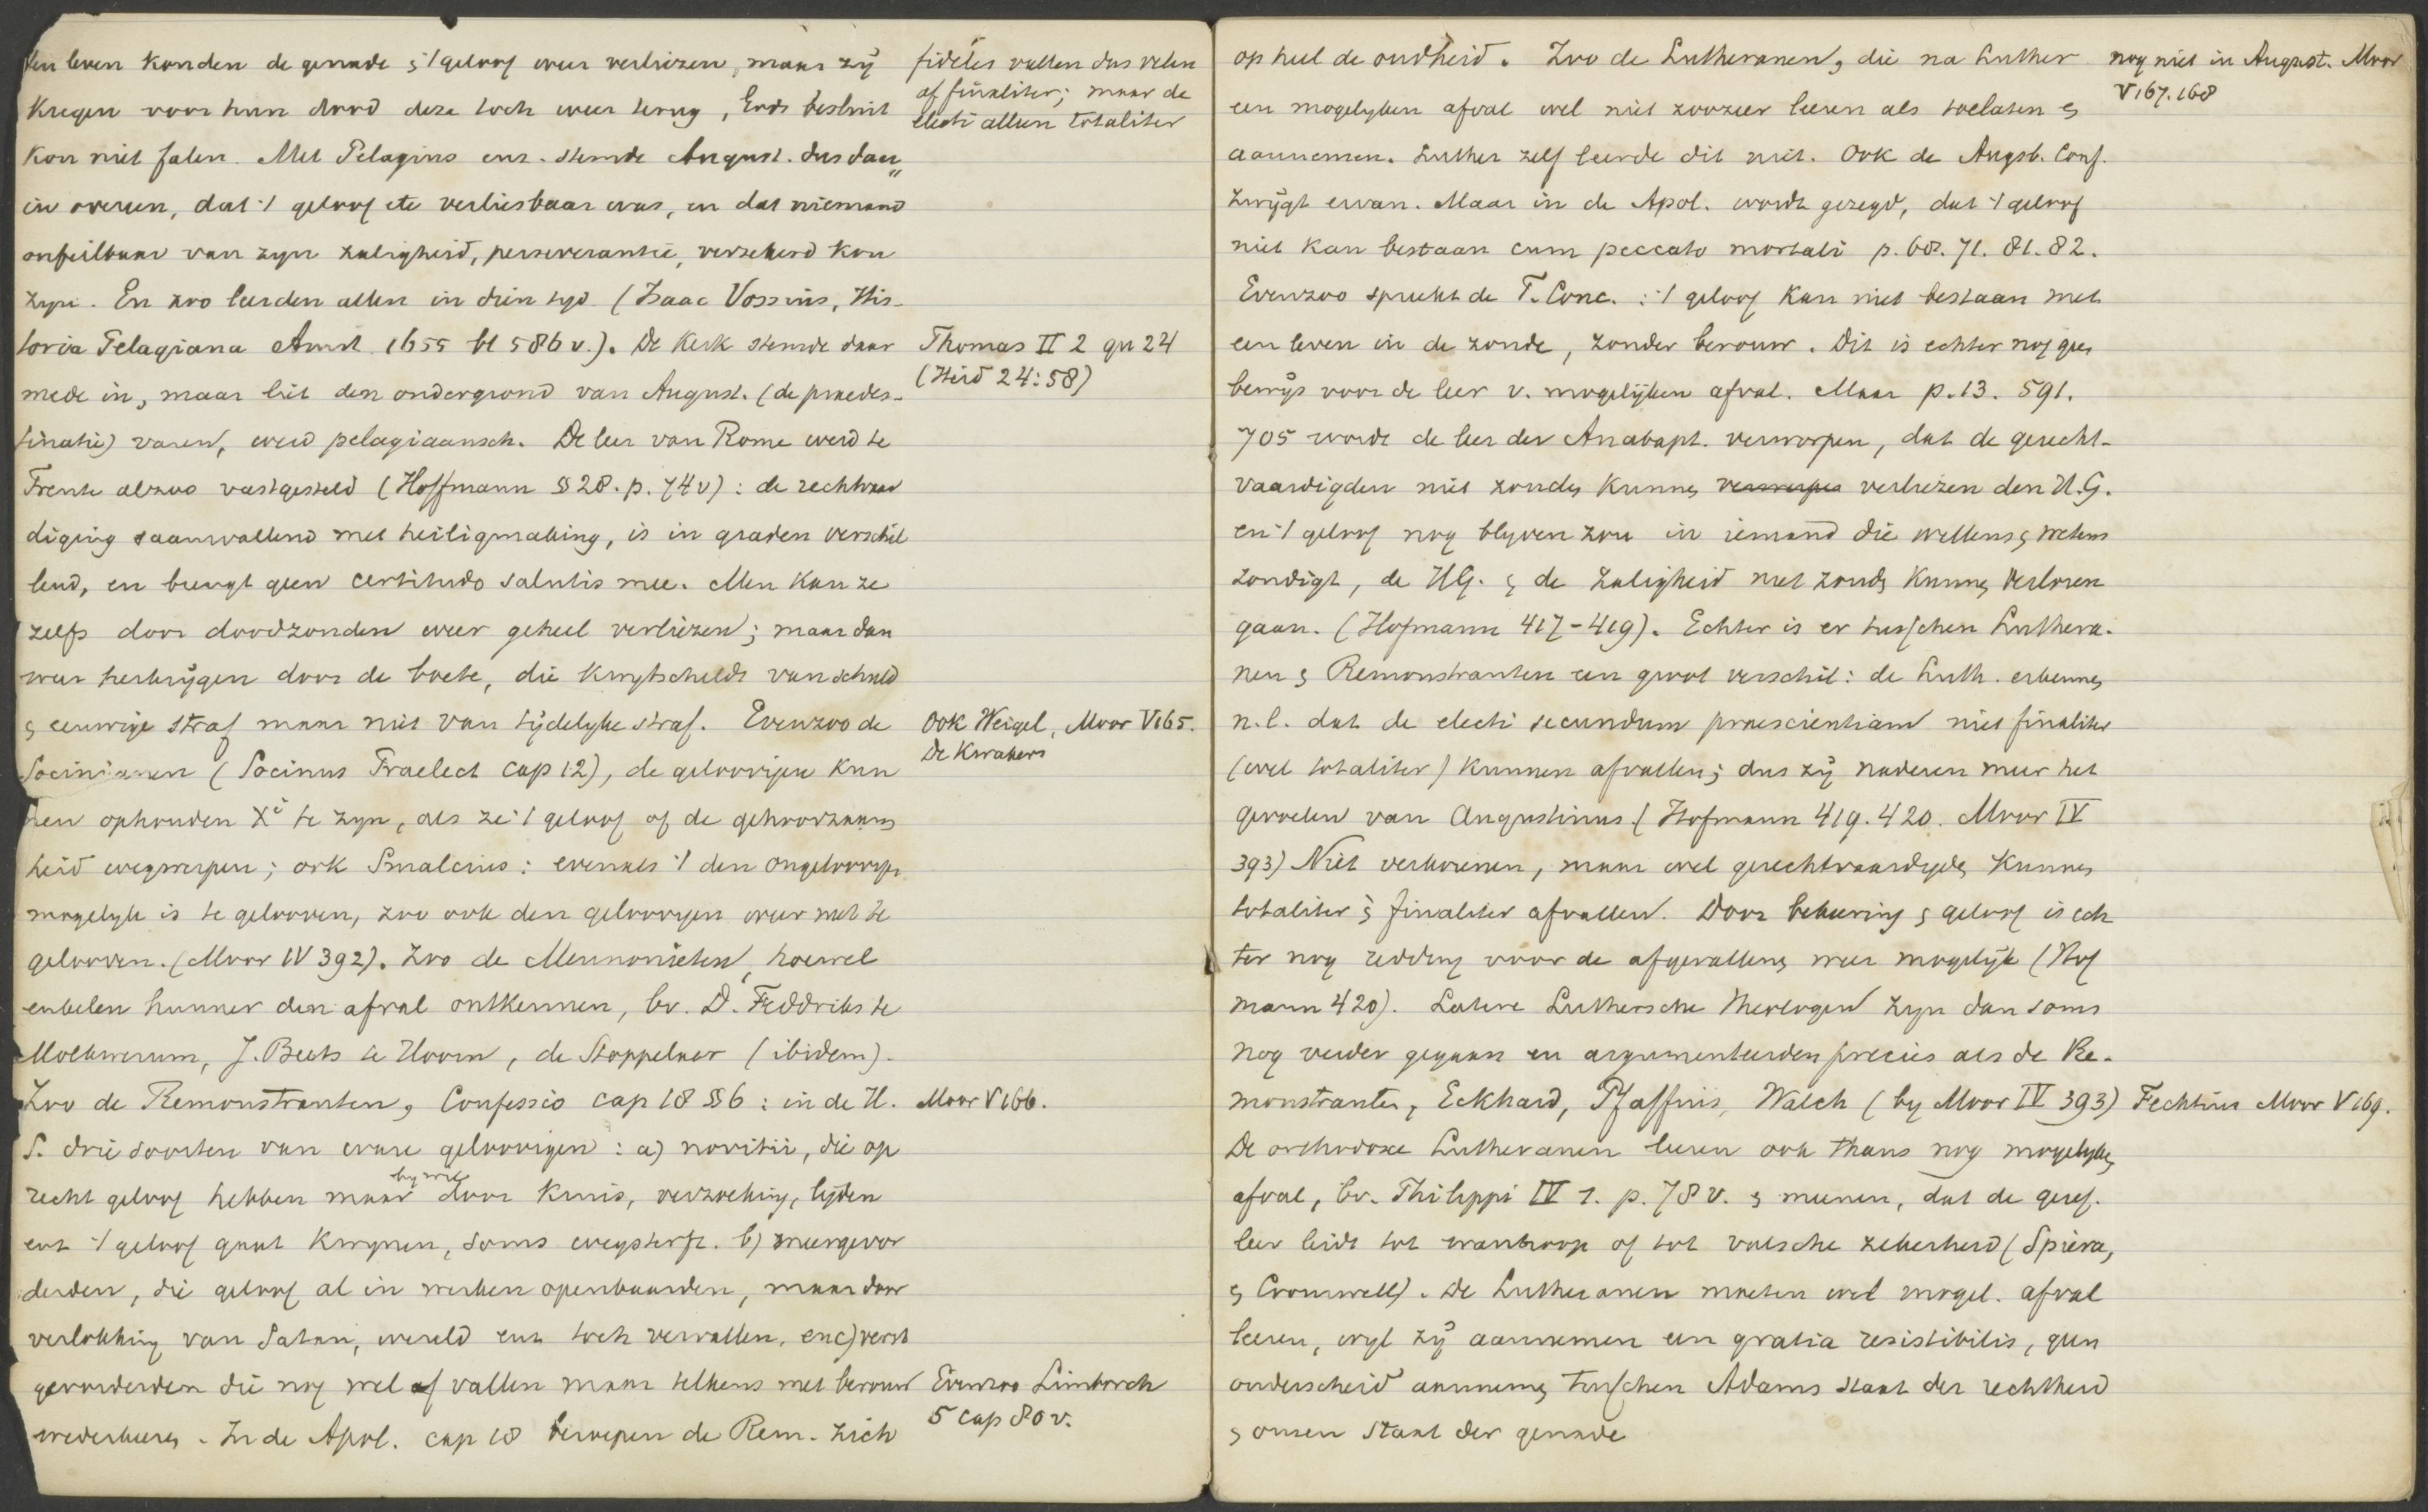 ten leven konden de genade & 't geloof weer verliezen, maar zij
kregen voor hun dood deze toch weer terug, Gods besluit
kon niet falen. Met Pelagius enz. stemde August. dus daar„
in overeen, dat 't geloof etc verliesbaar was, en dat niemand
onfeilbaar van zijn zaligheid, perseverantie, verzekerd kon
zijn. En zoo leerden allen in dien tijd (Isaac Vossius, His-
toria Pelagiana Amst. 1655 bl 586 v.). De Kerk stemde daar
mede in, maar liet den ondergrond van August. (de praedes-
tinatie) varen, werd pelagiaansch. De leer van Rome werd te
Trente alzoo vastgesteld (Hoffmann §28. p. 74v): de rechtvaar
diging saamvallend met heiligmaking, is in graden verschil
lend, en brengt geen certitudo salutis mee. Men kan ze
zelfs door doodzonden weer geheel verliezen; maar dan
weer herkrijgen door de boete, die kwijtscheldt van schuld
& eeuwige straf maar niet van tijdelijke straf. Evenzoo de
Socinianen (Socinus Praelect cap 12), de geloovigen kun
nen ophouden Xi te zijn, als ze 't geloof of de gehoorzaam
heid wegwerpen; ook Smalcius: evenals 't den ongeloovigen
mogelijk is te gelooven, zoo ook den geloovigen weer niet te
gelooven. (Moor IV 392). Zoo de Mennonieten, hoewel
enkelen hunner den afval ontkennen, bv. D. Feddriks te
Molkwerum, J. Beets te Hoorn, de Stoppelaar (ibidem).
Zoo de Remonstranten, Confessio cap 18 §6: in de H.
S. drie soorten van ware geloovigen: a) novitii, die op
recht geloof hebben maar bijwijl door kruis, verzoeking, lijden
enz 't geloof gaat kwijnen, soms wegsterft. b) meergevor
derden, die geloof al in werken openbaarden, maar door
verlokking van Satan, wereld enz toch vervallen, en c) verst
gevorderden die nog wel afvallen maar telkens met berouw
wederkeeren. In de Apol. cap 18 beroepen de Rem. zich
fideles vallen dus velen
af finaliter; maar de
electi alleen totaliter
Thomas II 2 qu 24
(Heid 24:58)
Ook Weigel, Moor V 165.
De Kwakers
Moor V 166.
Evenzoo Limborch
5 cap 80 v.
op heel de oudheid. Zoo de Lutheranen, die na Luther
een mogelijken afval wel niet zoozeer leeren als toelaten &
aannemen. Luther zelf leerde dit niet. Ook de Augsb. Conf.
zwijgt ervan. Maar in de Apol. wordt gezegd, dat 't geloof
niet kan bestaan cum peccato mortali p. 68. 71. 81. 82.
Evenzoo spreekt de F. Conc.: 't geloof kan niet bestaan met
een leven in de zonde, zonder berouw. Dit is echter nog geen
bewijs voor de leer v. mogelijken afval. Maar p. 13. 591.
705 wordt de leer der Anabapt. verworpen, dat de gerecht-
vaardigden niet zouden kunnen verliezen den H.G.
en 't geloof nog blijven zou in iemand die willens & wetens
zondigt, de HG. & de zaligheid niet zoude kunnen verloren
gaan. (Hofmann 417-419). Echter is er tusschen Luthera-
nen & Remonstranten een groot verschil: de Luth. erkennen
n.l. dat de electi secundum praescientiam niet finaliter
(wel totaliter) kunnen afvallen; dus zij naderen meer het
gevoelen van Augustinus (Hofmann 419. 420. Moor IV
393) Niet verkorenen, maar wel gerechtvaardigden kunnen
totaliter & finaliter afvallen. Door bekeering & geloof is ech
ter nog redding voor de afgevallenen weer mogelijk (Hof
mann 420). Latere Luthersche theologen zijn dan soms
nog verder gegaan en argumenteerden precies als de Re-
monstranten, Eckhard, Pfaffius, Walch (by Moor IV 393)
De orthodoxe Lutheranen leeren ook thans nog mogelijken
afval, bv. Philippi IV 1. p. 78 v. & meenen, dat de geref.
leer leidt tot wanhoop of tot valsche zekerheid (Spiera,
& Cromwell). De Lutheranen moeten wel mogel. afval
leeren, wijl zij aannemen een gratia resistibilis, geen
onderscheid aannemen tusschen Adams staat der rechtheid
& onzen staat der genade
nog niet in August. Moor
V 167. 168
Fechtius Moor V 169.